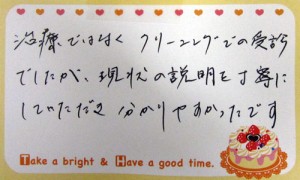 治療ではなく クリーニングでの受診
でしたが、現状の説明を丁寧に
していただき 分かりやすかったです
Take a bright & Have a good time.